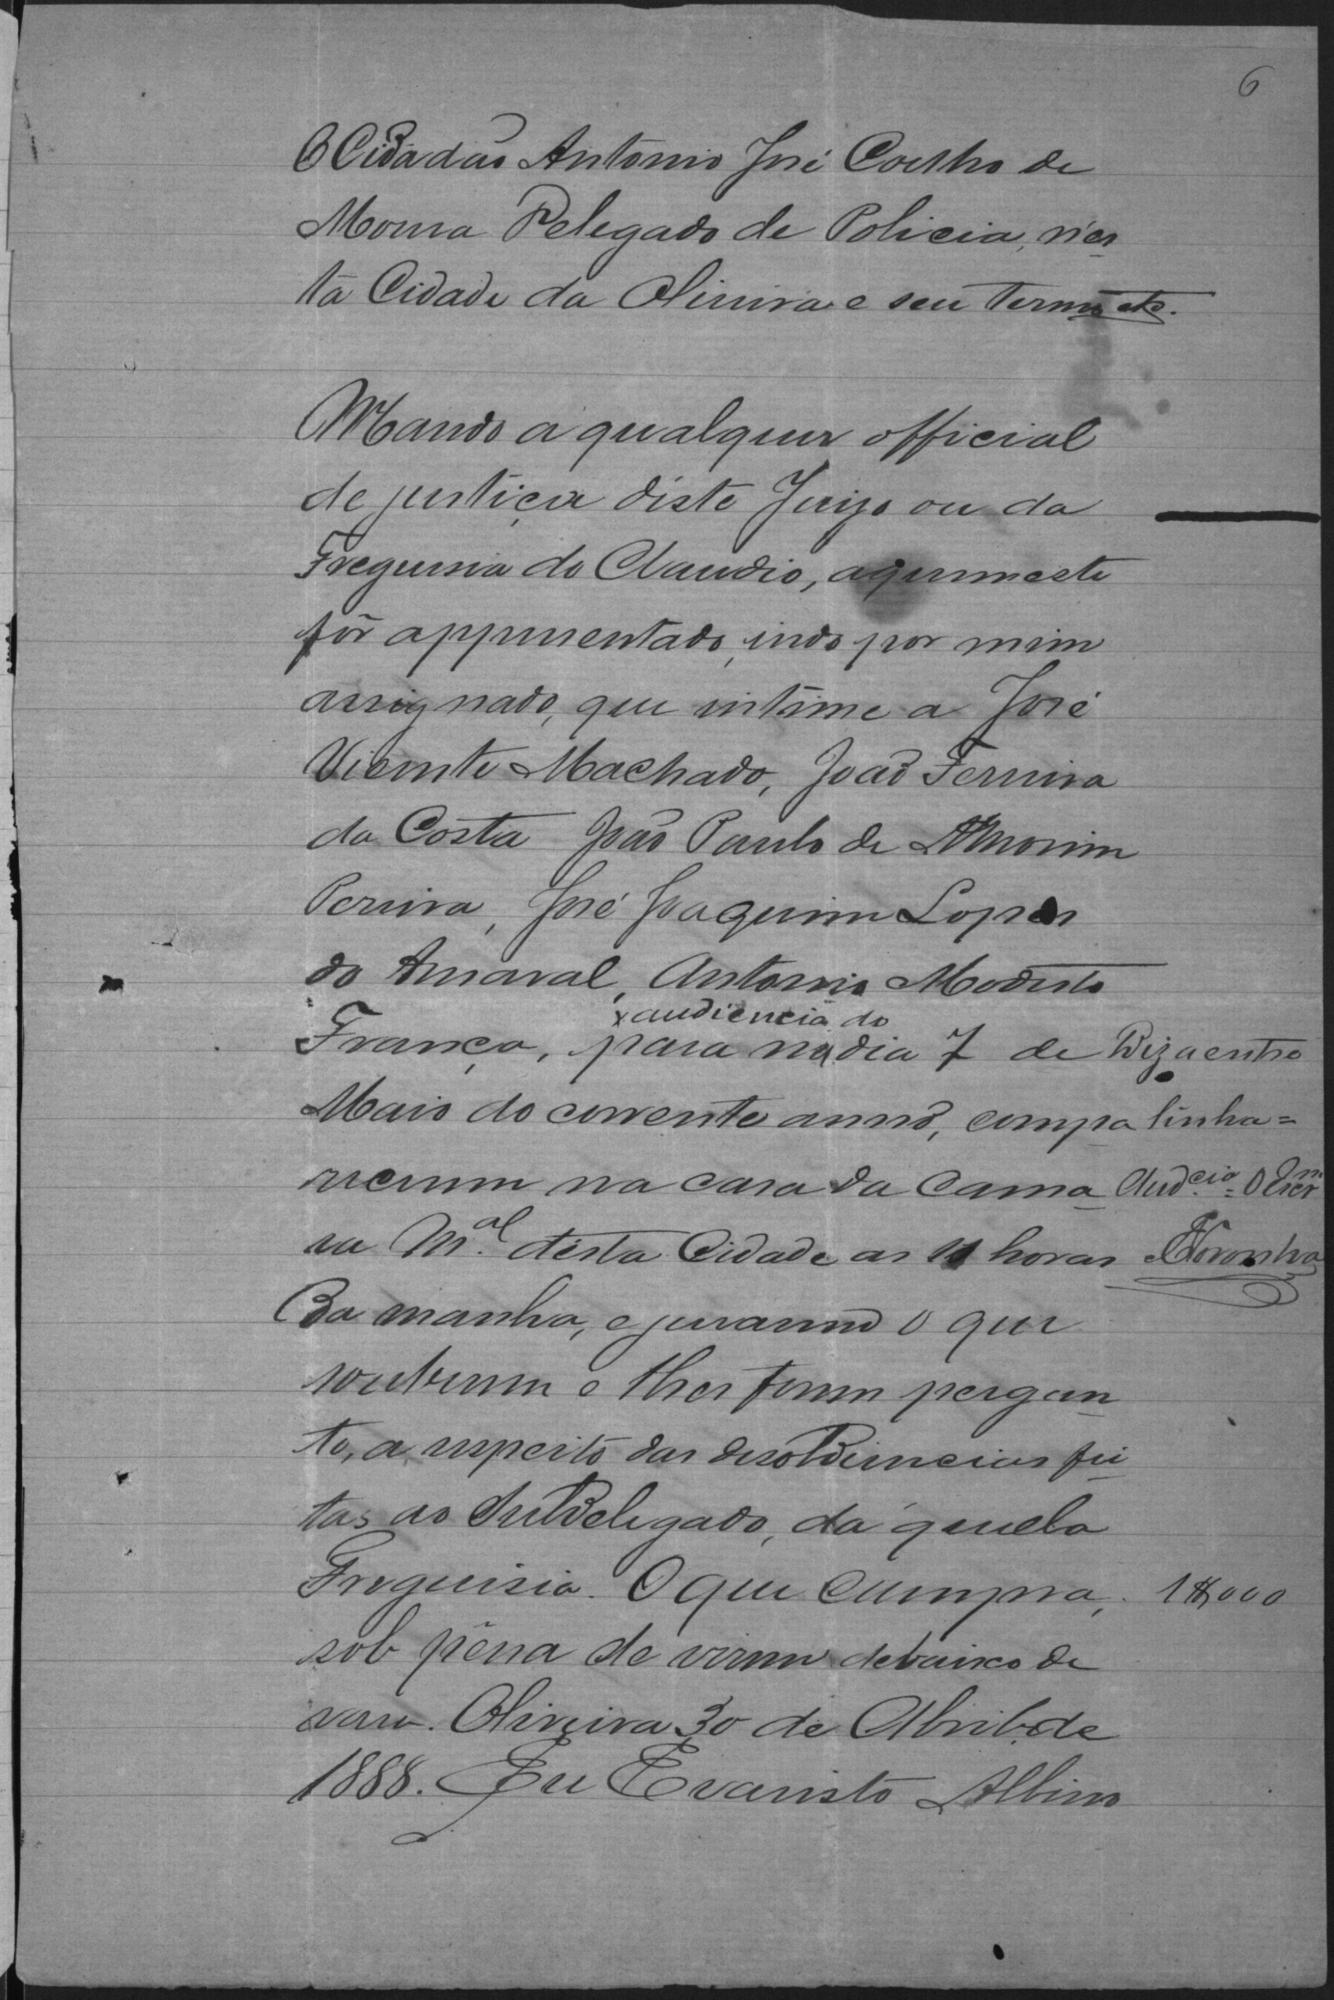 6
O Cidadão Antonio José Coelho de
Moura Delegado de Policia, n'es
ta Cidade da Oliveira e seu termo etc.
Mando a qualquer official
de justiça dêste Juizo ou da
Freguesia do Claudio, a quem este
fôr appresentado, indo por mim
assignado, que intime a José
Vicente Machado, João Ferreira
da Costa João Paulo de Amorim
Pereira, José Joaquim Lopes
do Amaral, Antonio Modesto
x audiencia do
França, para na dia 7 de
Maio do corrente anno, compa
recerem na casa da Cama
ra M.al desta Cidade as 11 horas
Da manha, e jurarem o que
souberem e lhes forem pergun
to, a respeito das desobdiencias fei
tas ao Subdelegado, da quella
Freguisia. O que cumpra,
sob pena de virem debaixo de
vara. Oliveira 30 de Abril de
1888. Eu Evaristo Albino
Diz a entre
linha =
Aud.cia = O Escr
Noronha
1$000